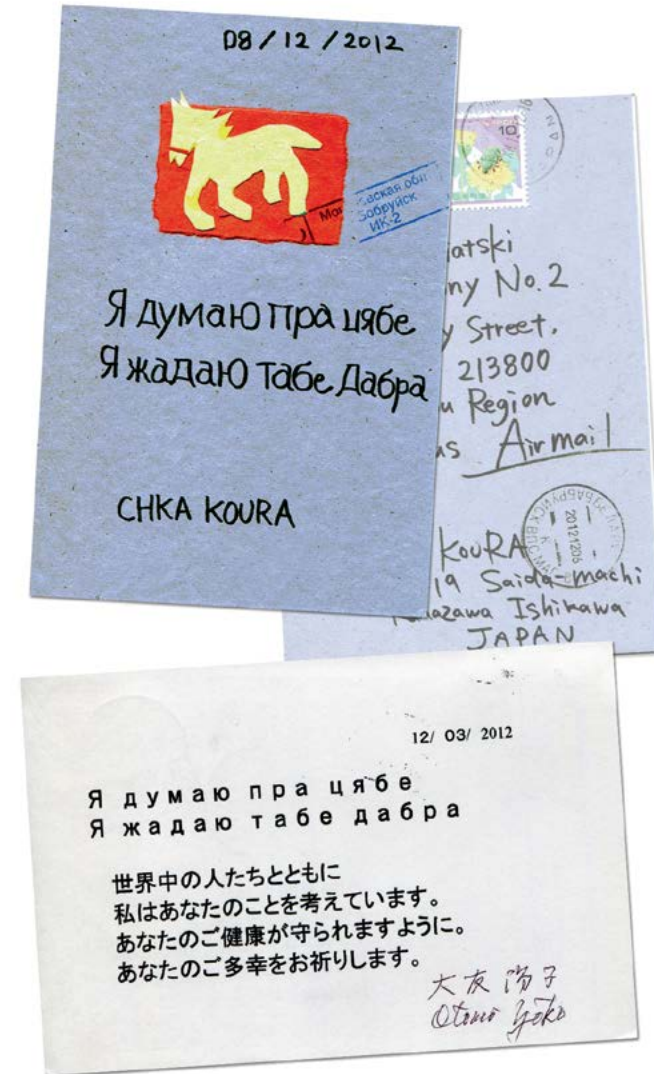 D8 / 12 / 2012
Мо
ИК-2
Я думаю пра цябе
Я жадаю табе дабра
CHKA KOURA
10
iatski
ny No. 2
y Street,
213800
u Region
us Airmail
20121206
KOURA
19 Saida-machi
azawa Ishikawa
JAPAN
12/ 03/ 2012
Я думаю пра цябе
Я жадаю табе дабра
世界中の人たちとともに
私はあなたのことを考えています。
あなたのご健康が守られますように。
あなたのご多幸をお祈りします。
Otomo Yoko